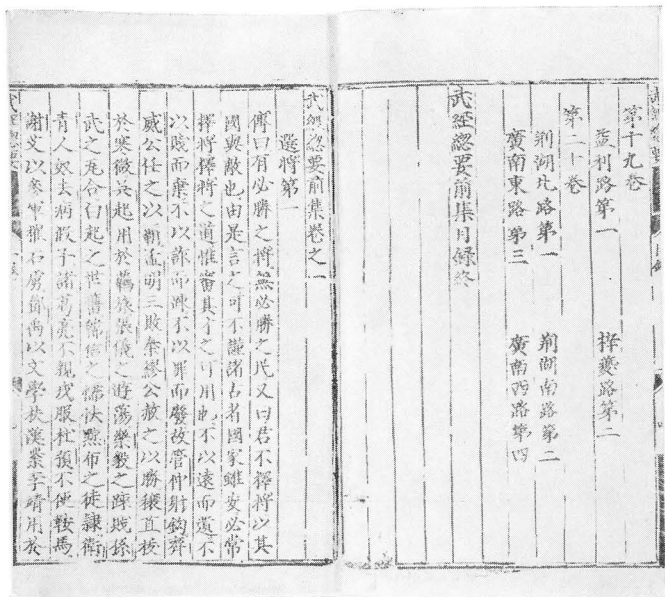 第十九卷
益利路第一　梓夔路第二
第二十卷
荆湖北路第一　荆湖南路第二
廣南東路第三　廣南西路第四
武經緫要前集目録終
武經緫要前集卷之一
選將第一
傳曰有必勝之將無必勝之民又曰君不擇將以其
國與敵也由是言之可不謹諸古者國家雖安必常
擇將擇將之道惟審其才之可用也不以遠而遺不
以賤而棄不以詐而踈不以罪而廢故管仲射鈎齊
威公任之以霸孟明三敗秦繆公赦之以勝穰苴拔
於寒微吳起用於羈旅張儀之遊蕩樂毅之踈賤孫
武之瓦合白起之世舊韓信之懦怯黥布之徒隸衛
青人奴去病假子諸葛亮不親戎服杜預不便鞍馬
謝艾以參軍摧石虜鄧禹以文學扶漢業李靖用於